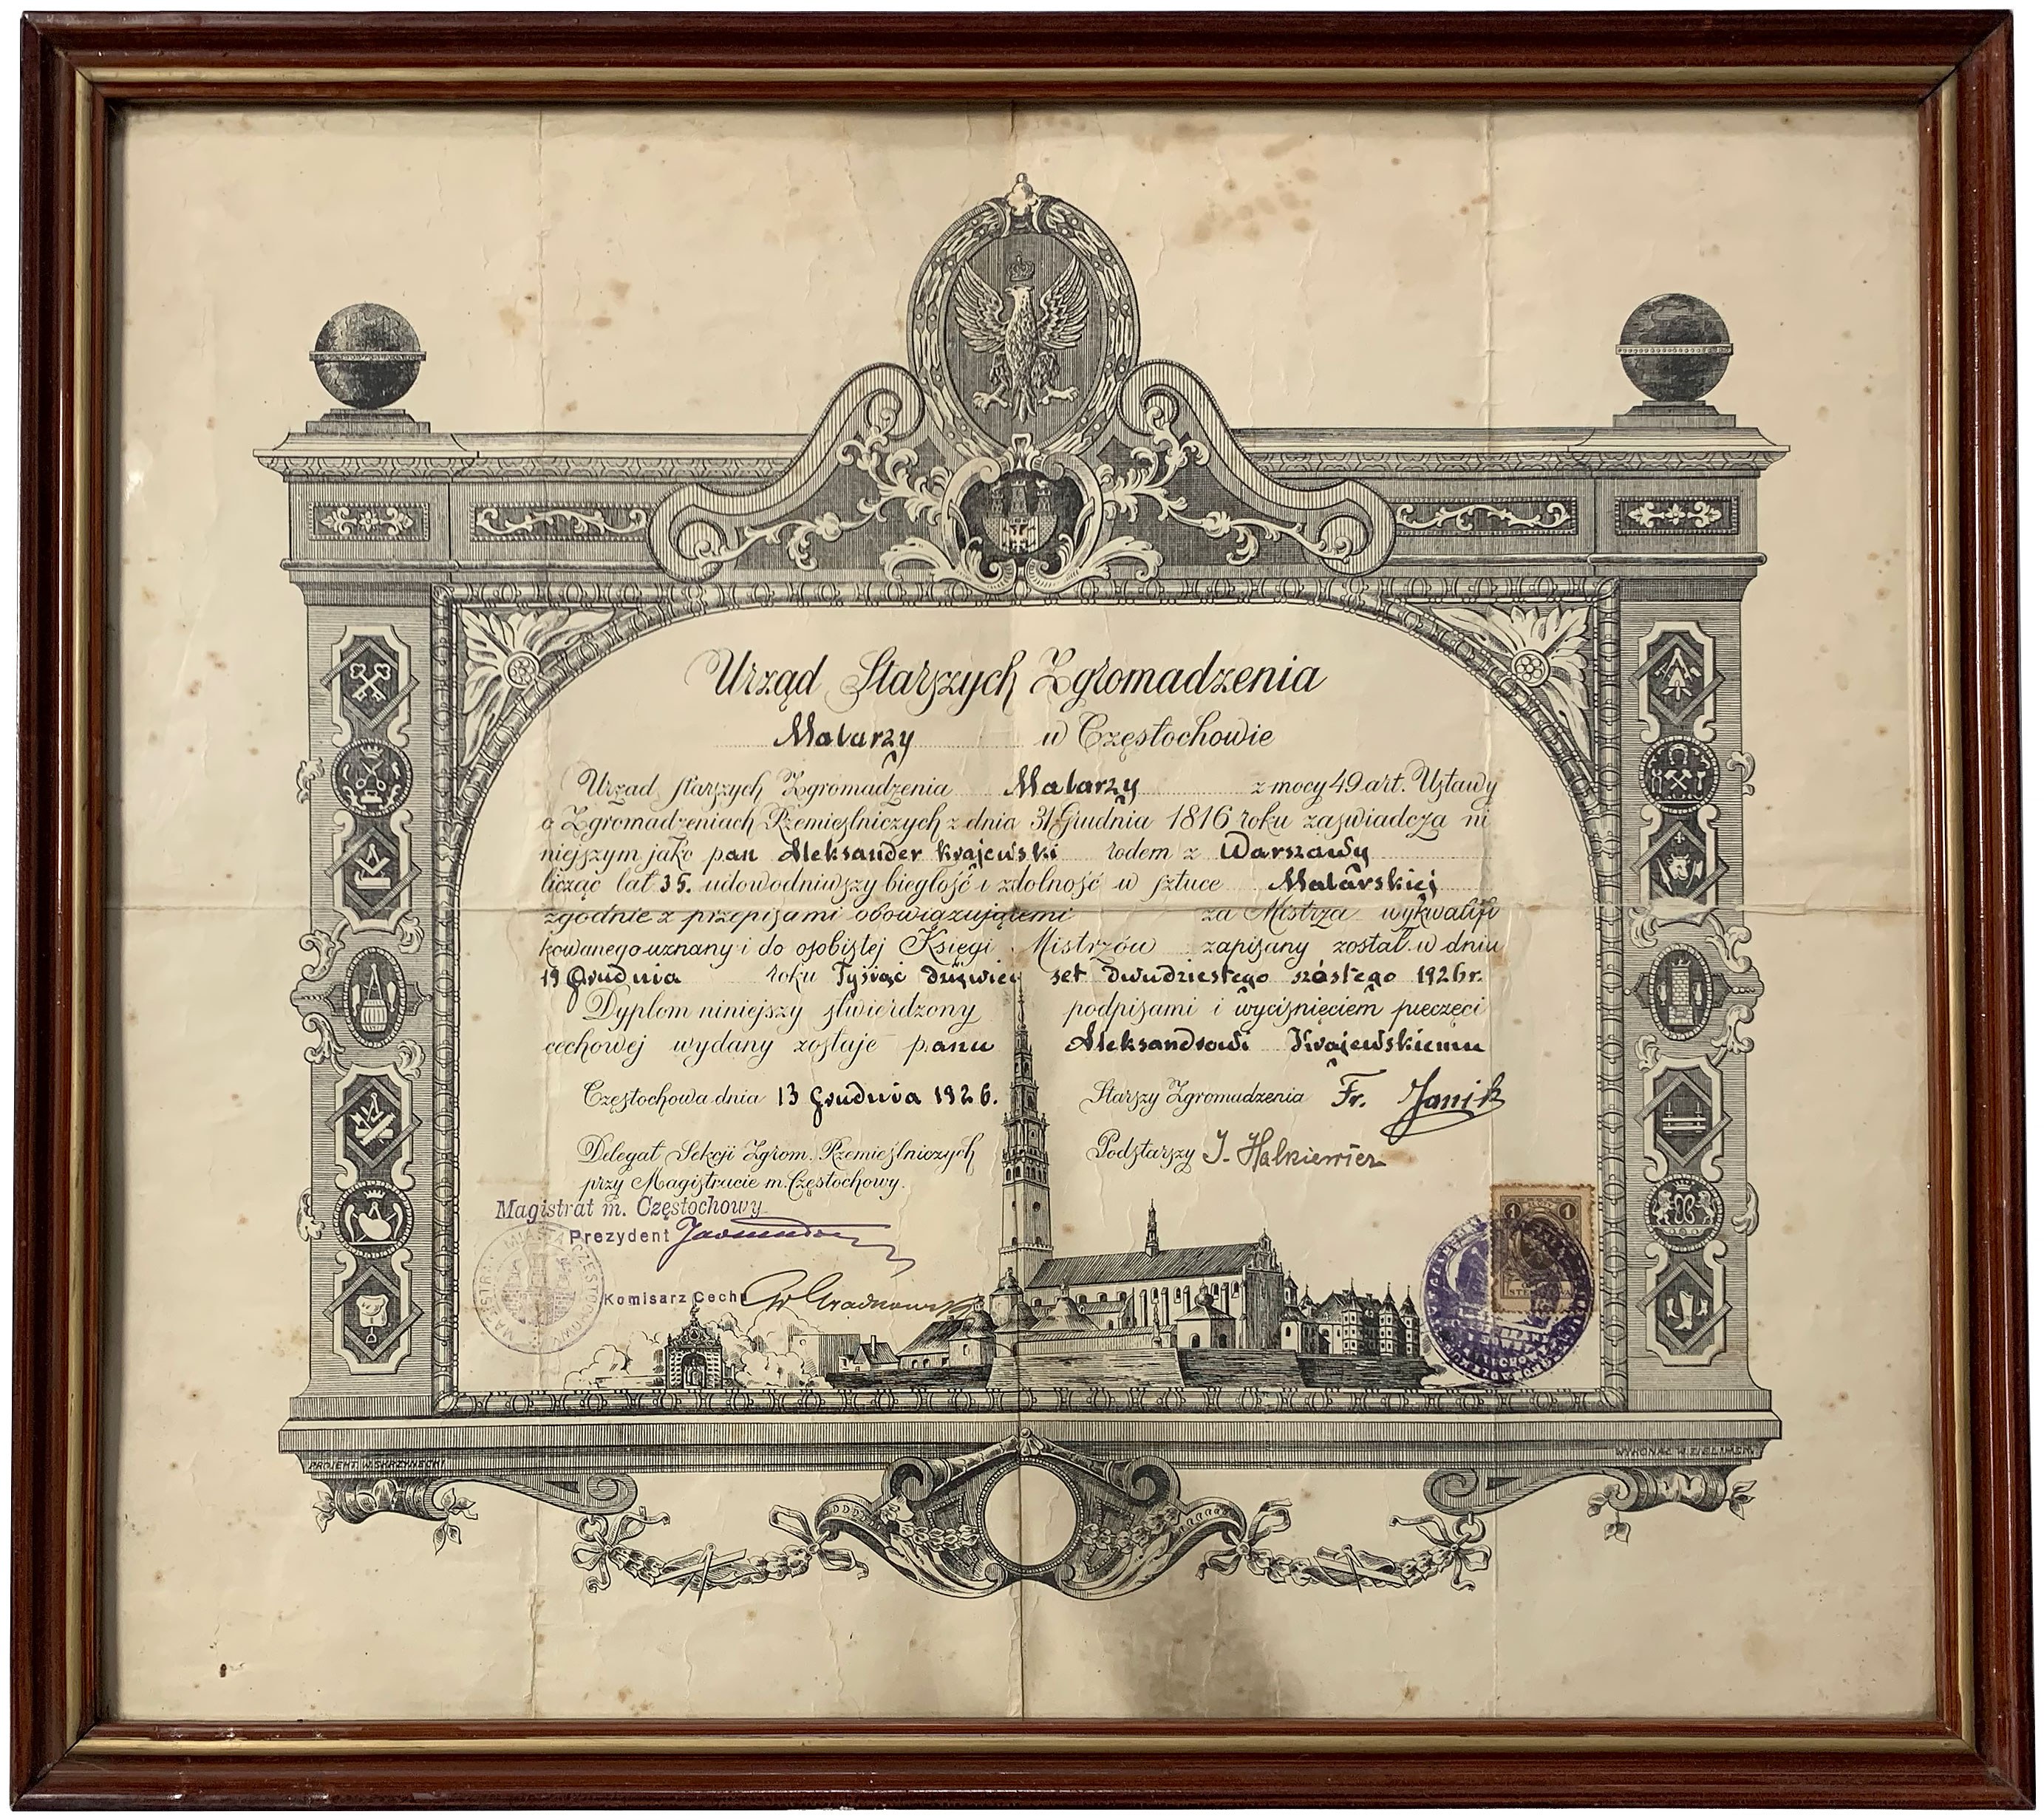 Urząd Starszych Zgromadzenia
Malarzy w Częstochowie
Urząd starszych Zgromadzenia Malarzy z mocy 49 art. Ustawy
o Zgromadzeniach Rzemieślniczych z dnia 31 Grudnia 1816 roku zaświadcza ni
niejszym jako pan Aleksander Krajewski rodem z Warszawy
licząc lat 35. udowodniwszy biegłość i zdolność w sztuce Malarskiej
zgodnie z przepisami obowiązującemi za Mistrza wykwalifi
kowanego uznany i do osobistej Księgi Mistrzów zapisany został w dniu
19 Grudnia roku Tysiąc dziewięć set dwudziestego szóstego 1926 r.
Dyplom niniejszy stwierdzony podpisami i wyciśnięciem pieczęci
cechowej wydany zostaje panu Aleksandrowi Krajewskiemu
Częstochowa dnia 13 Grudnia 1926. Starszy Zgromadzenia Fr. Janik
Delegat Sekcji Zgrom. Rzemieślniczych Podstarszy J. Halkiewicz
przy Magistracie m. Częstochowy.
Magistrat m. Częstochowy
Prezydent
Komisarz Cechu
MAGISTRAT MIASTA CZĘSTOCHOWY
1 1
PROJEKT W. SKRZYNECKI
WYKONAŁ W.